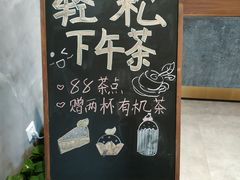 轻松
下午茶
88茶点
赠两杯有机茶